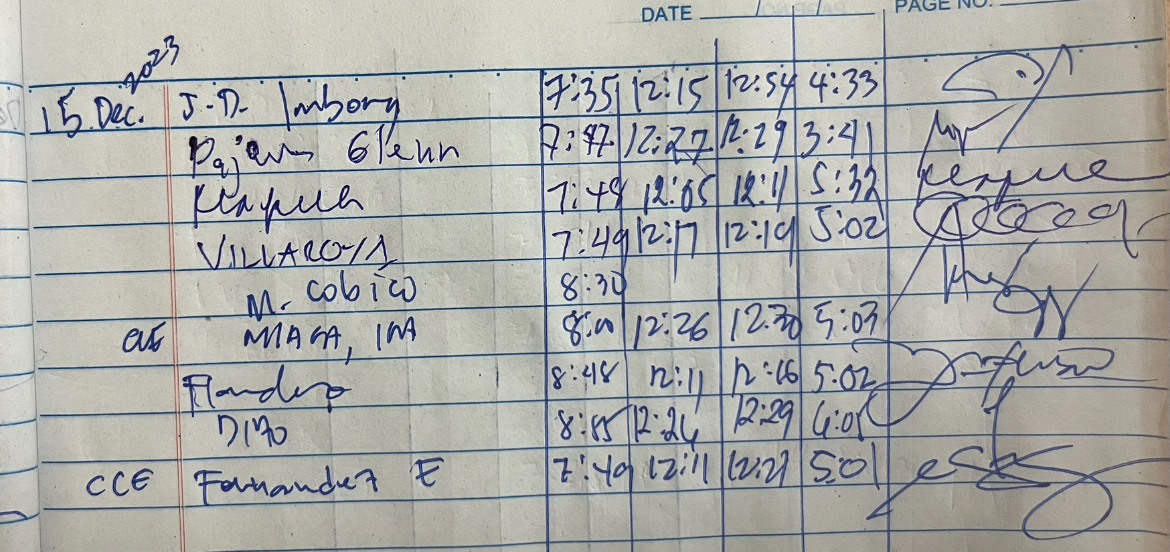 DATE / / PAGE NO.
2023
15 Dec. J.D. Imbong 7:35 12:15 12:54 4:33
Glenn 7:47 12:27 12:29 3:41
7:48 12:05 12:11 5:32
VILLAROYA 7:49 12:17 12:19 5:02
M. Cobico 8:30
8:00 12:26 12:30 5:03
8:48 12:11 12:16 5:02
8:55 12:24 12:29
CCE Fernandez E 7:49 12:11 12:21 5:01